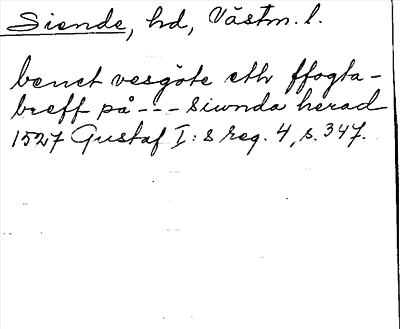 Siende, hd, Västm. l.
benct vesgöte eth ffogta-
breff på --- siwnda herad
1527 Gustaf I:s reg. 4, s. 347.